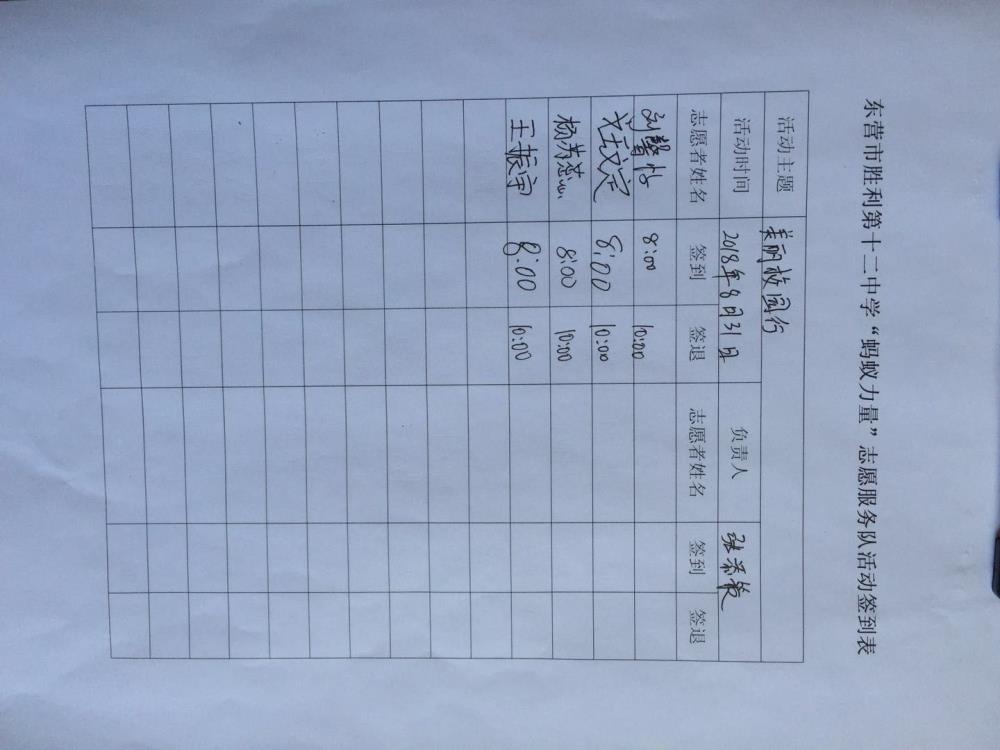 东营市胜利第十二中学“蚂蚁力量”志愿服务队活动签到表
活动主题 美丽校园行
活动时间 2018年8月31日 负责人
志愿者姓名 签到 签退 志愿者姓名 签到 签退
刘馨怡 8:00 10:00
8:00 10:00
8:00 10:00
王振宇 8:00 10:00